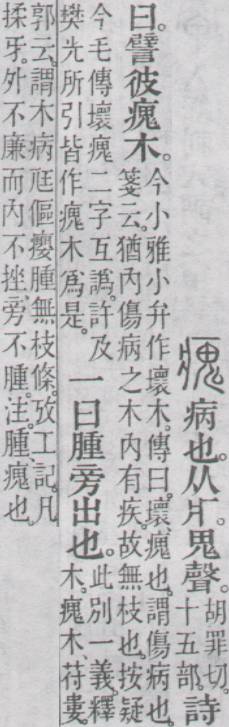 瘣 病也。从疒。鬼聲。胡罪切。十五部。詩
曰。譬彼瘣木。今小雅小弁作壞木。傳曰。壞、瘣也。謂傷病也。箋云。猶內傷病之木內有疾。故無枝也。按疑
今毛傳壞瘣二字互譌。許及樊光所引皆作瘣木爲是。一曰腫旁出也。此別一義。釋木。瘣木、苻婁
郭云。謂木病尫傴癭腫無枝條。攷工記。凡揉牙。外不廉而內不挫、旁不腫。注。腫、瘣也。